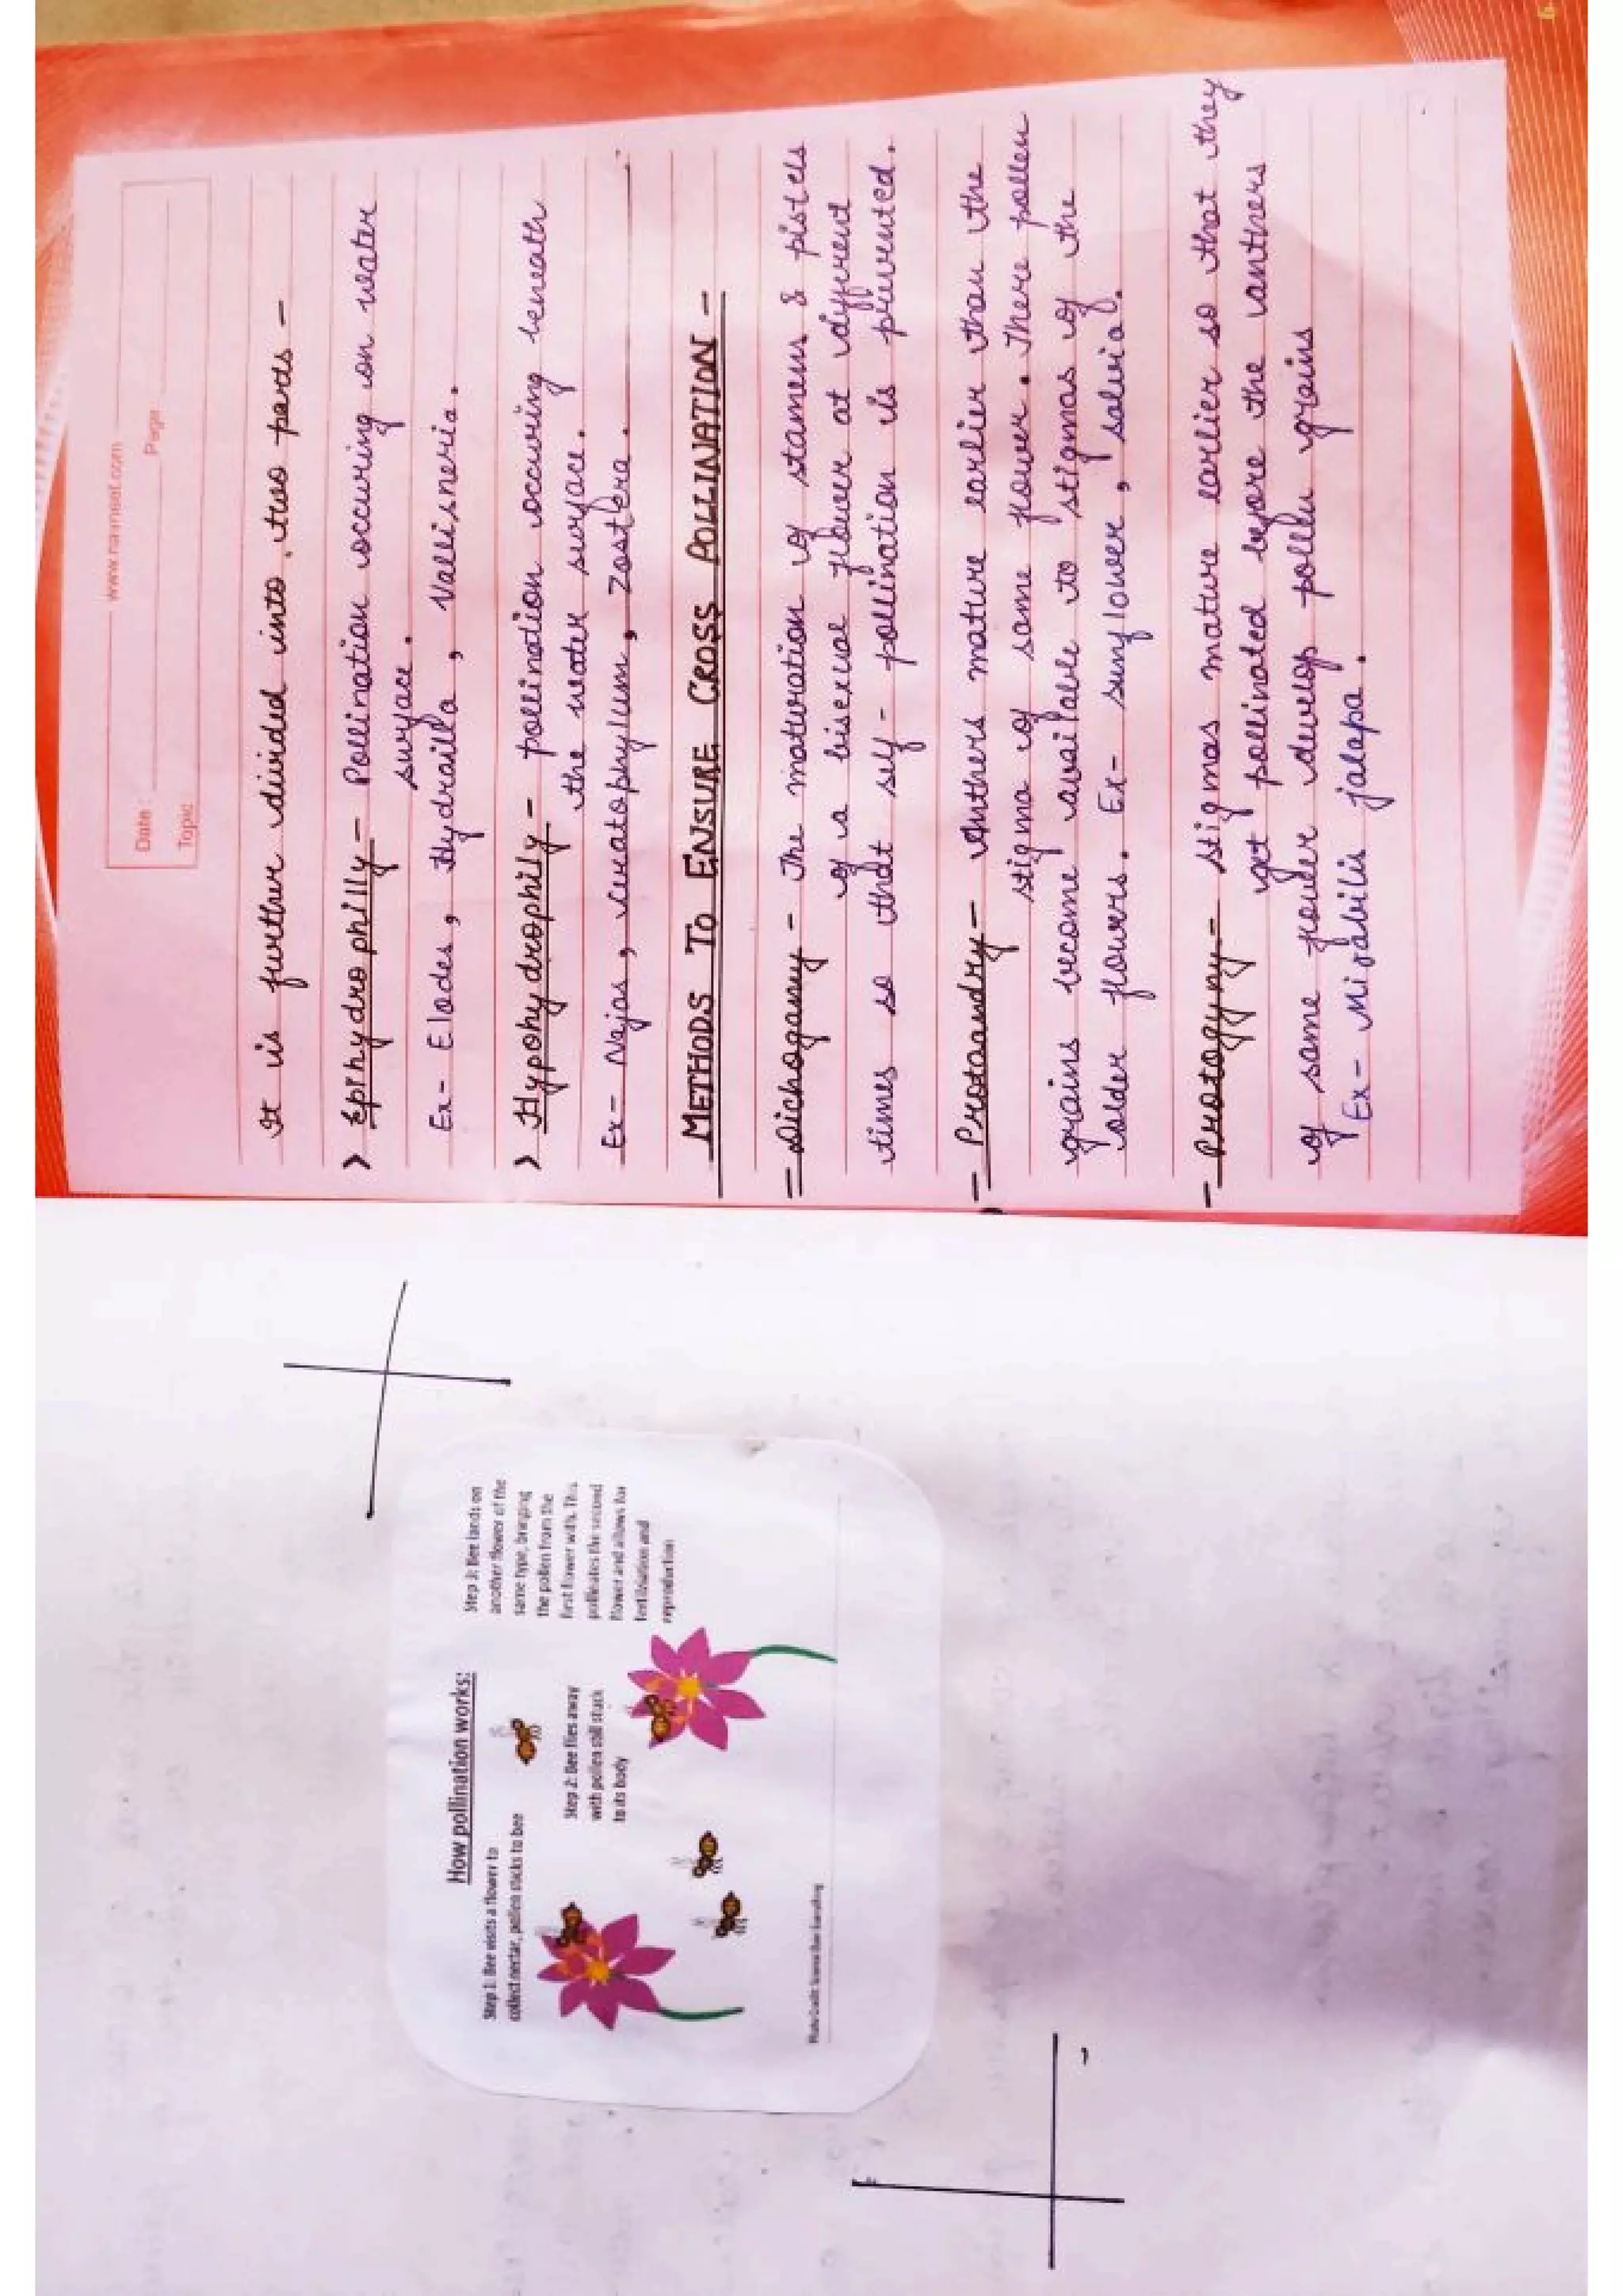 How pollination works:
Step 1: Bee visits a flower to
collect nectar, pollen sticks to bee
Step 2: Bee flies away
with pollen still stuck
to its body
Step 3: Bee lands on
another flower of the
same type, bringing
the pollen from the
first flower with. This
pollinates the second
flower and allows for
fertilisation and
reproduction
Date :
Page
Topic
It is further divided into two parts -
> Ephydrophilly - Pollination occuring on water
surface.
Ex- Elodes, Hydrailla, Vallisneria.
> Hypohydrophily - pollination occuring beneath
the water surface.
Ex- Najas, Ceratophylum, Zostera.
METHODS TO ENSURE CROSS POLLINATION -
= Dichogamy - The maturation of stamens & pistels
of a bisexual flower at different
times so that self-pollination is prevented.
- Protoandry - Anthers mature earlier than the
stigma of same flower. There pollen
grains become available to stigmas of the
older flowers. Ex- sunflower, salvia.
- Protogyny - stigmas mature earlier so that they
get pollinated before the anthers
of same flower develop pollen grains
Ex- Mirabilis jalapa.